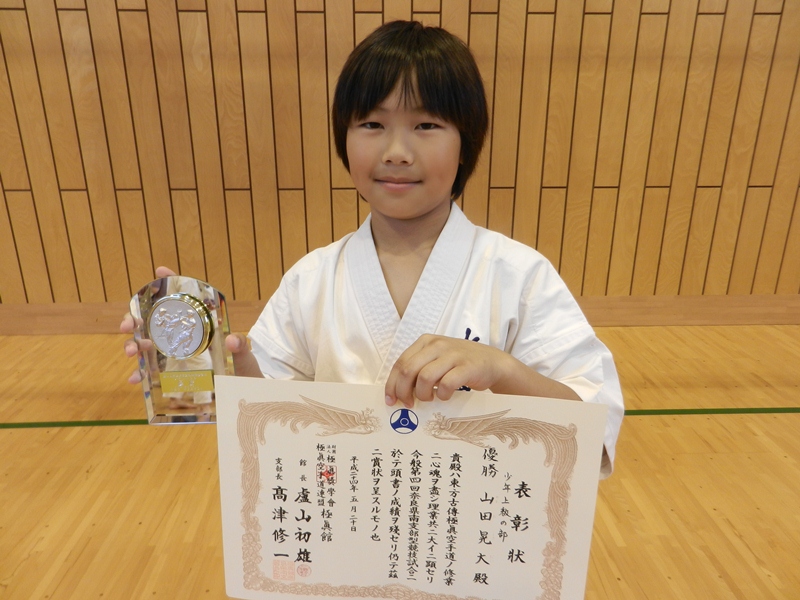 表彰状
少年上級の部
優勝 山田晃大殿
貴殿ハ東方古傳極眞空手道ノ修業
ニ心魂ヲ盡シ理業共ニ大イニ顕セリ
今般第四回奈良県南支部型競技試合ニ
於テ頭書ノ成績ヲ殘セリ仍テ茲
ニ賞状ヲ呈スルモノ也
平成二十四年五月二十日
極眞奬學會 極眞館
極眞空手道連盟
館長 盧山初雄
支部長 髙津修一